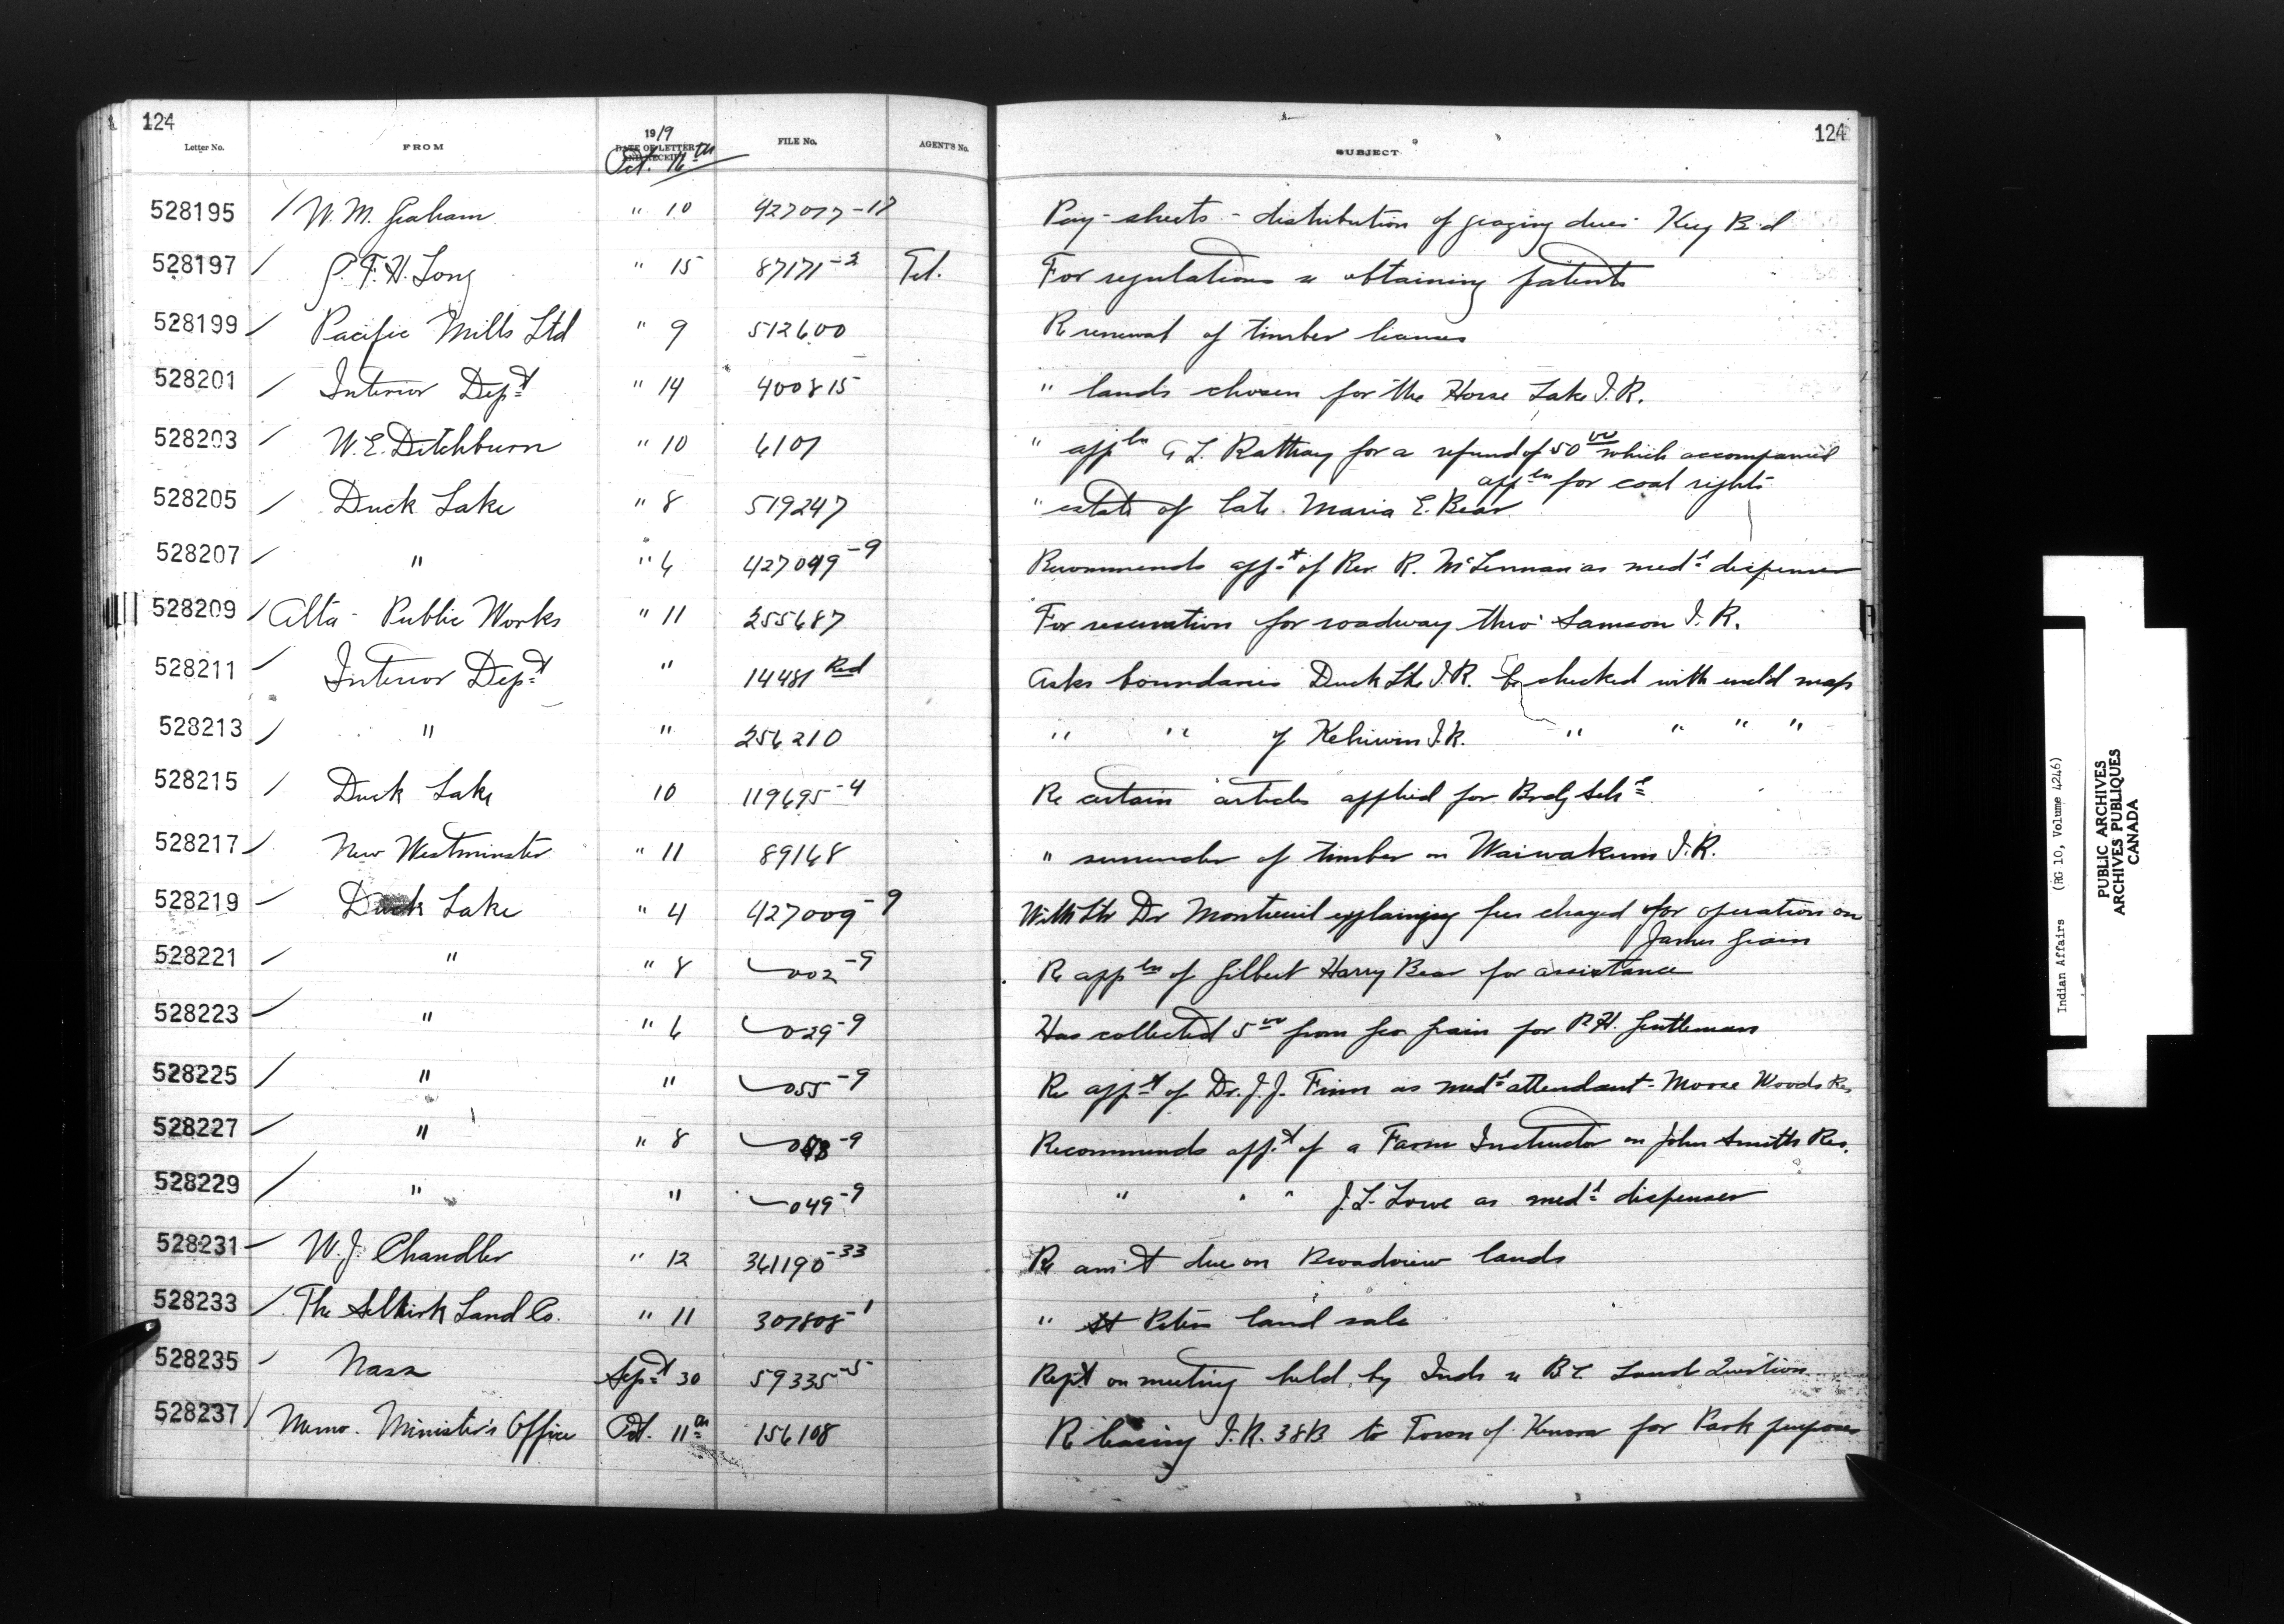 124 124
Letter No. FROM 1919 DATE OF LETTER AND RECEIPT FILE No. AGENT'S No. SUBJECT
Oct. 16th
528195 / W. M. Graham " 10 427077-17 Pay-sheets - distribution of grazing dues Key B'd
528197 / F. H. Long " 15 87171-2 Tel. For regulations re obtaining patents
528199 / Pacific Mills Ltd " 9 512600 Re renewal of timber licenses
528201 / Interior Dept " 14 400815 " lands chosen for the Horse Lake I.R.
528203 / W. E. Ditchburn " 10 6107 " appln G L. Rattray for a refund of 50 00 which accompanied
appln for coal rights
528205 / Duck Lake " 8 519247 " estate of late Maria E. Bear
528207 / " " 6 427049-9 Recommends appt of Rev. R. McLennan as medl dispenser
528209 / Alta - Public Works " 11 255687 For reservation for roadway thro' Samson I.R.
528211 / Interior Dept " 14481 Red Asks boundaries Duck Lke I.R. be checked with encl'd map
528213 / " " 256210 " " of Kehiwin I.R. " " " "
528215 / Duck Lake 10 119695-4 Re certain articles applied for Brdg Schl
528217 / New Westminster " 11 89168 " surrender of timber on Waiwakum I.R.
528219 / Duck Lake " 4 427009-9 With ltr Dr Montreuil explaining fees charged for operation on
James Grain
528221 / " " 8 002-9 Re appln of Gilbert Harry Bear for assistance
528223 / " " 6 029-9 Has collected 5 00 from Geo Grain for R.H. Gentleman
528225 / " " 055-9 Re appt of Dr. J.J. Finn as medl attendant - Moose Woods Res
528227 / " " 8 -9 Recommends appt of a Farm Instructor on John Smiths Res.
528229 / " " 049-9 " " " J. L. Lowe as medl dispenser
528231 / W. J. Chandler " 12 361190-33 Re am't due on Broadview lands
528233 / The Selkirk Land Co. " 11 307808-1 " St Peters land sale
528235 / Nass Sept 30 59335-5 Rept on meeting held by Inds re B C Land Question
528237 / Memo. Minister's Office Oct. 11th 156108 Re leasing I.R. 38B to Town of Kenora for Park purposes
Indian Affairs (RG 10, Volume 4246)
PUBLIC ARCHIVES
ARCHIVES PUBLIQUES
CANADA